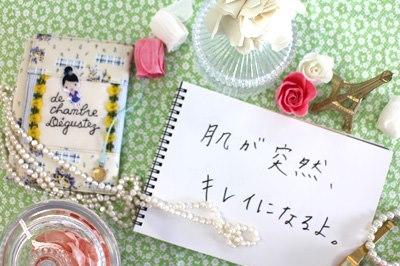 de
chambre
Dégustez
肌が突然、
キレイになるよ。